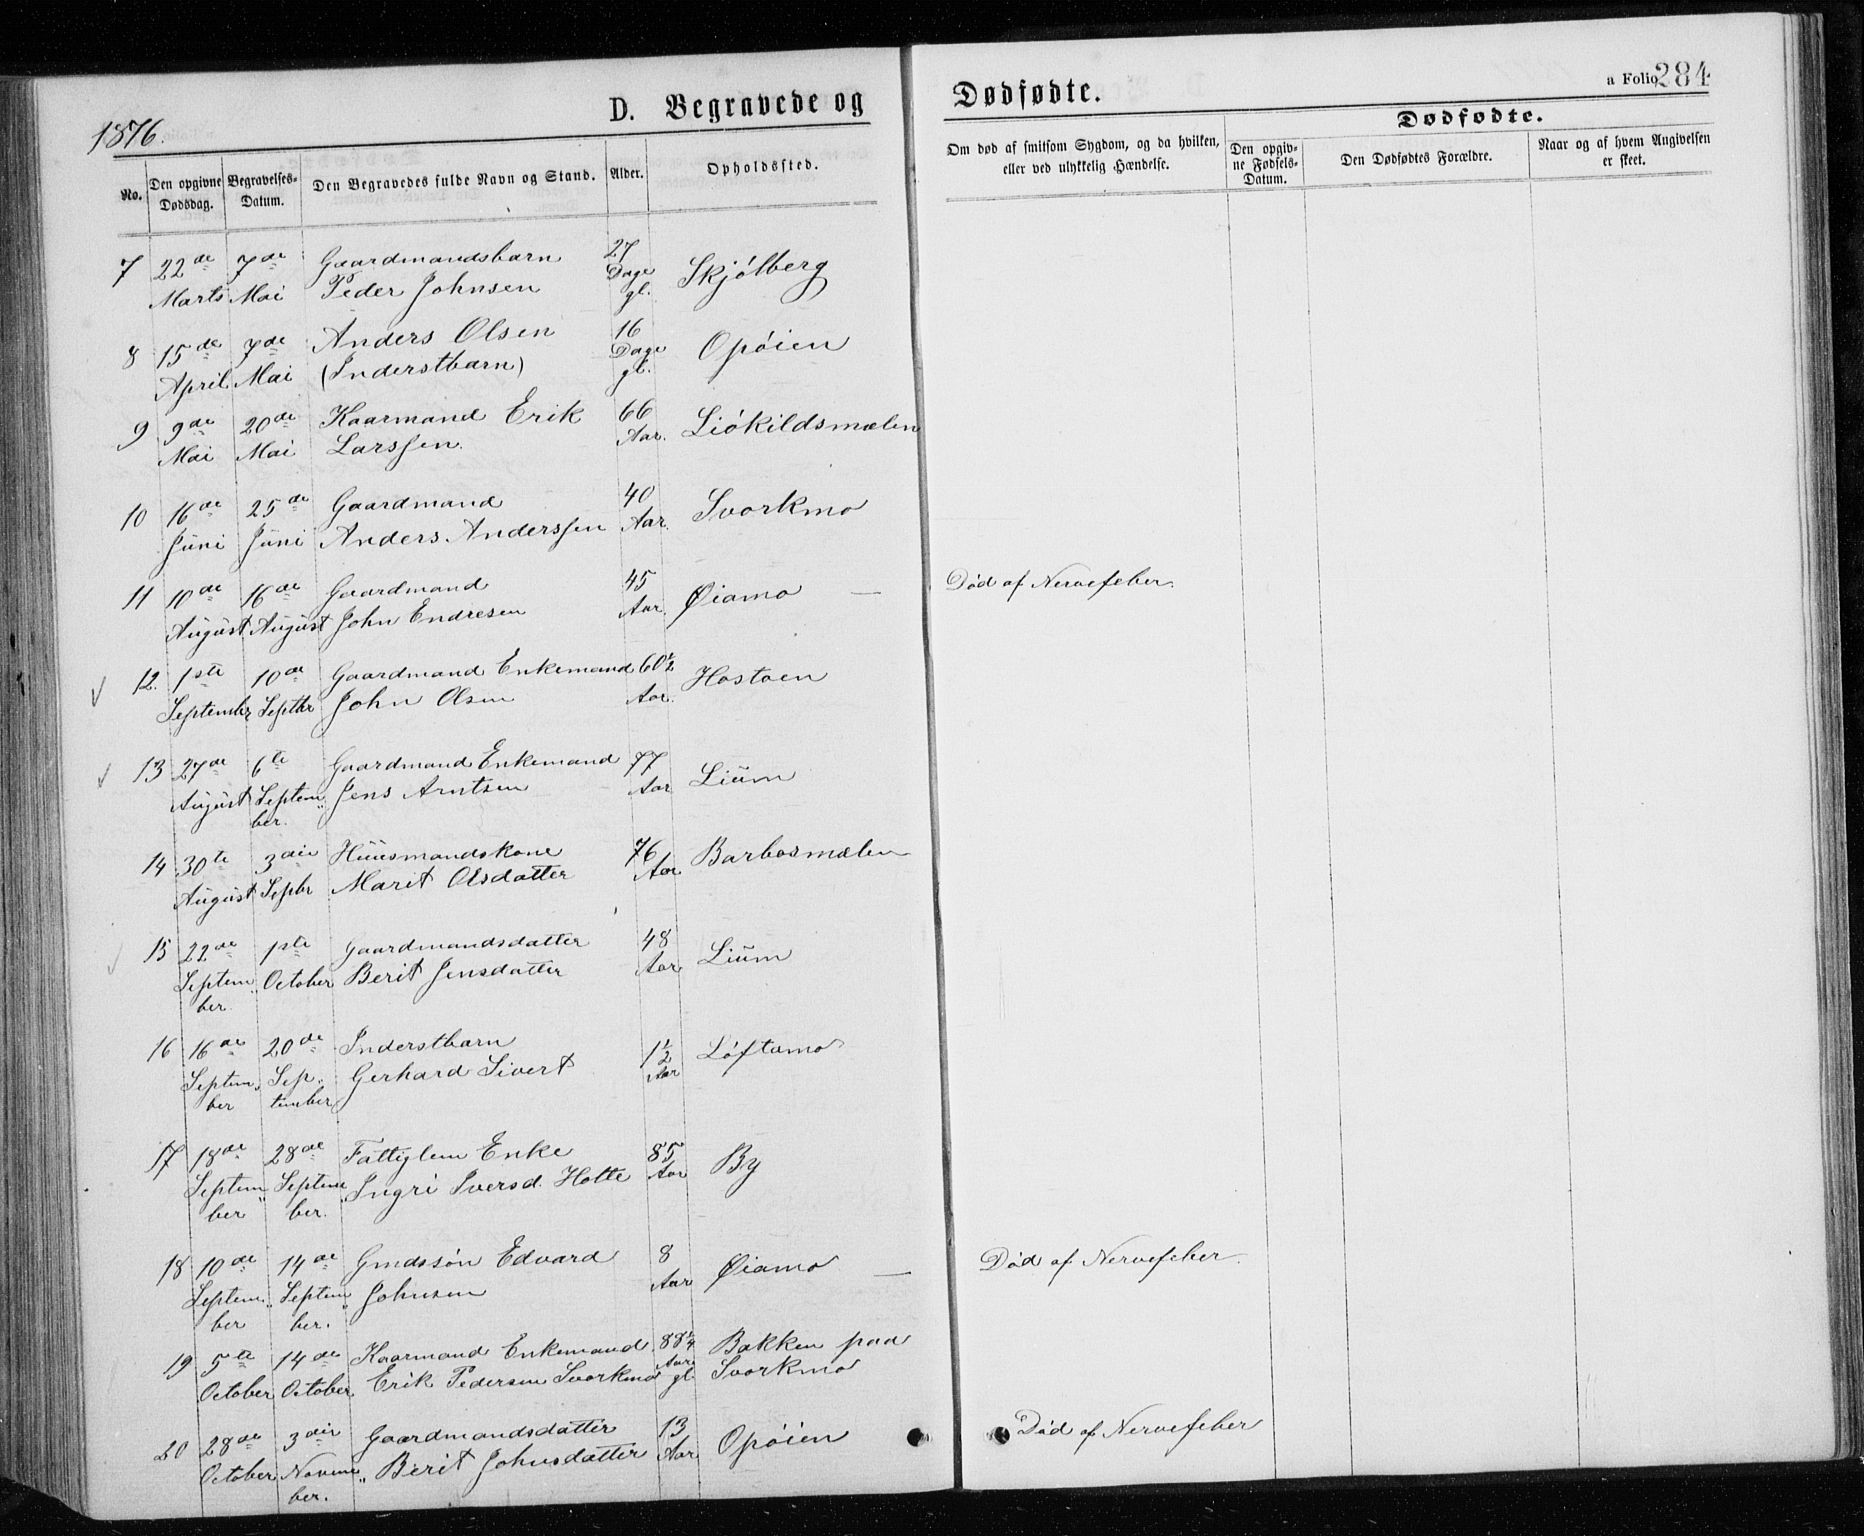 1876.
D. Begravede og
Dødfødte.
a Folio 284
No.
Den opgivne Dødsdag.
Begravelses-Datum.
Den Begravedes fulde Navn og Stand.
Alder.
Opholdssted.
Om død af smitsom Sygdom, og da hvilken, eller ved ulykkelig Hændelse.
Dødfødte.
Den opgivne Fødsels-Datum.
Den Dødfødtes Forældre.
Naar og af hvem Angivelsen er skeet.
7 22de Marts 7de Mai Gaardmandsbarn Peder Johnsen 27 Dage gl. Skjölberg
8 15de April 7de Mai Anders Olsen (Inderstbarn) 16 Dage gl. Opöien
9 9de Mai 20de Mai Kaarmand Erik Larssen. 66 Aar. Liökildsmælen
10 16de Juni 25de Juni Gaardmand Anders Anderssen 40 Aar. Svorkmo
11 10de August 16de August Gaardmand John Endresen 45 Aar. Øiamo — Død af Nervefeber.
12. 1ste September 10de Septbr Gaardmand Enkemand John Olsen 60½ Aar. Hostoen
13 27de August 6te September. Gaardmand Enkemand Jens Arntsen 77 Aar Lium
14 30te August 3die Septbr Huusmandskone Marit Olsdatter 76 Aar Barbosmælen
15 22de September 1ste October Gaardmandsdatter Berit Jensdatter 48 Aar Lium
16 16de September 20de September Inderstbarn Gerhard Sivert 1½ Aar Löftamo
17 18de September 28de September. Fattiglem Enke Ingri Iversd. Holte 85 Aar By
18 10de September 14de September. Gmdssön Edvard Johnsen 8 Aar Øiamo — Død af Nervefeber.
19 5te October 14de October Kaarmand Enkemand Erik Pedersen Svorkmo 88¼ Aar gl Bakken paa Svorkmo
20 28de October 3die November. Gaardmandsdatter Berit Johnsdatter 13 Aar Opöien Død af Nervefeber